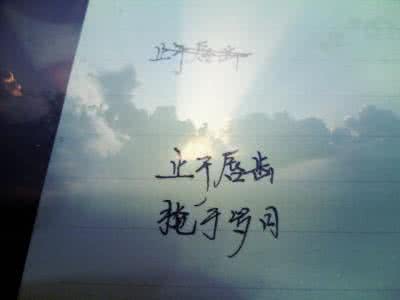 止于唇齿
止于唇齿
掩于岁月